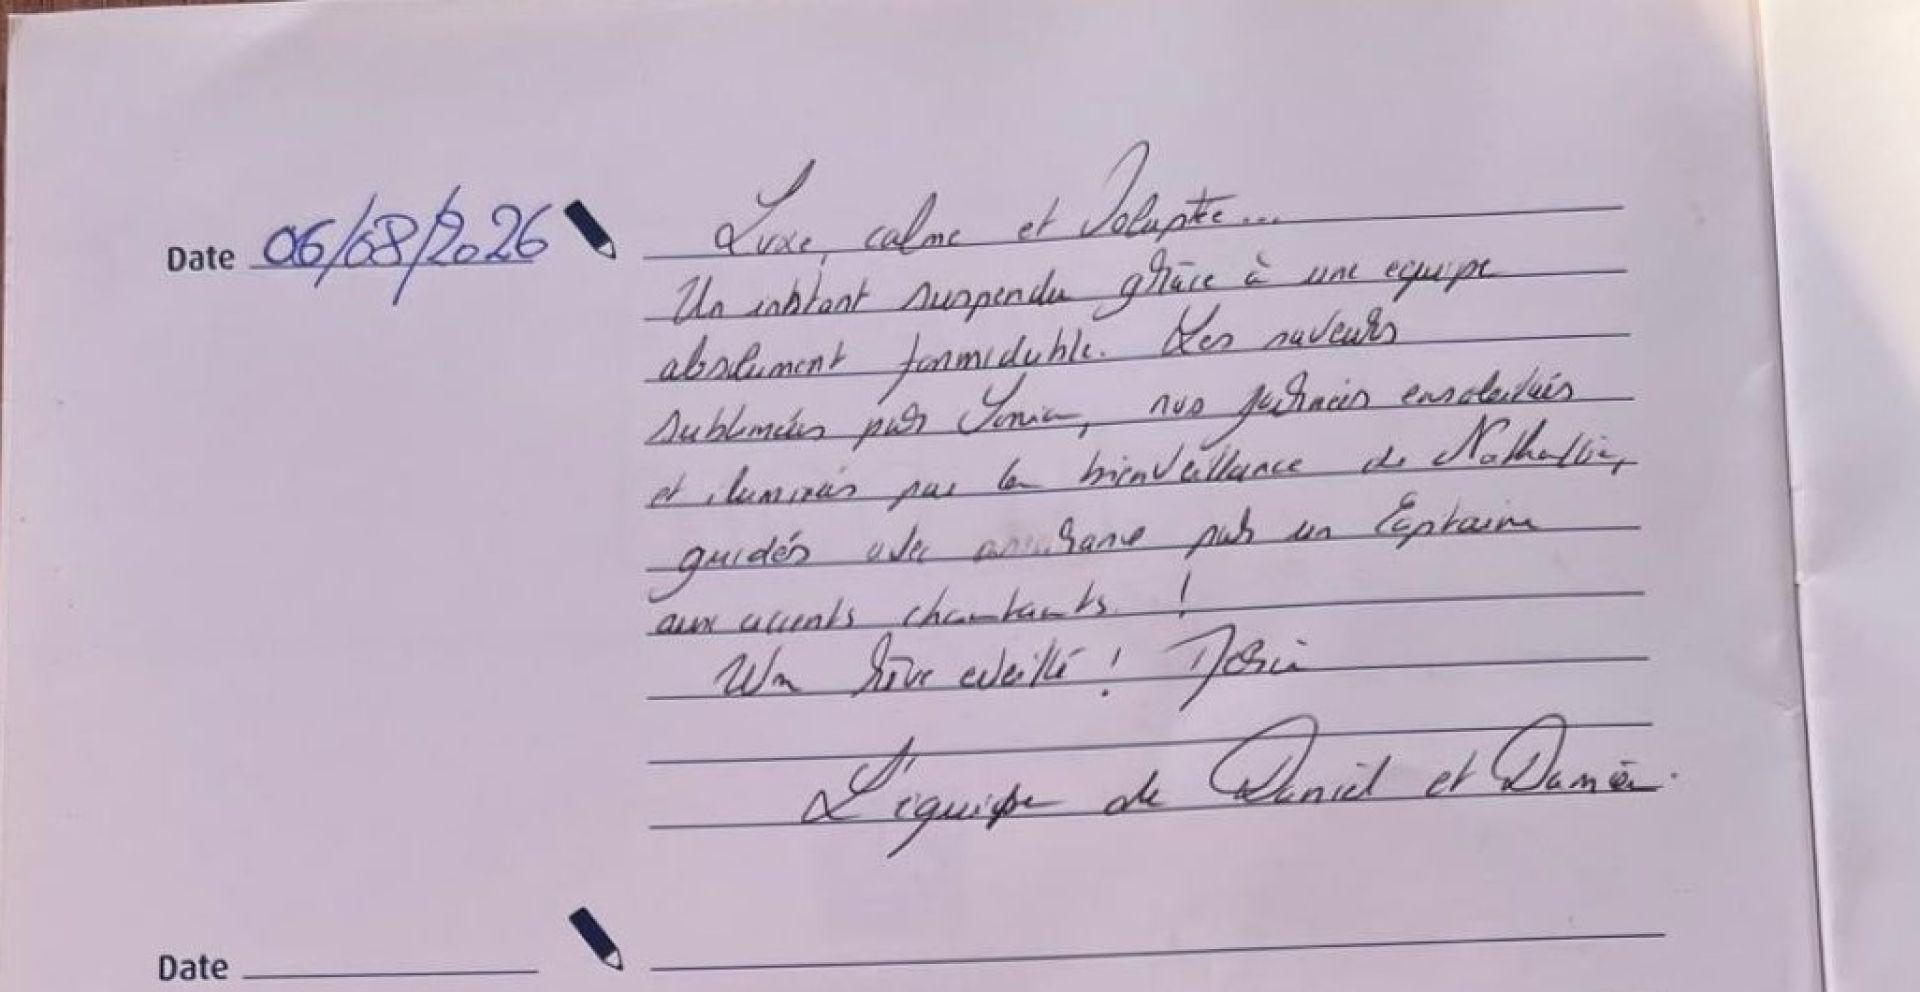 Date 06/08/2026
Luxe, calme et Volupté...
Un instant suspendu grâce à une equipe
absolument formidable. Les saveurs
sublimées par Sonia, nos journées ensoleillées
et iluminées par la bienveillance de Nathallie,
guidés avec assurance par un Capitaine
aux accents chantants !
Un rêve eveillé ! Merci
L'équipe de Daniel et Damien.
Date